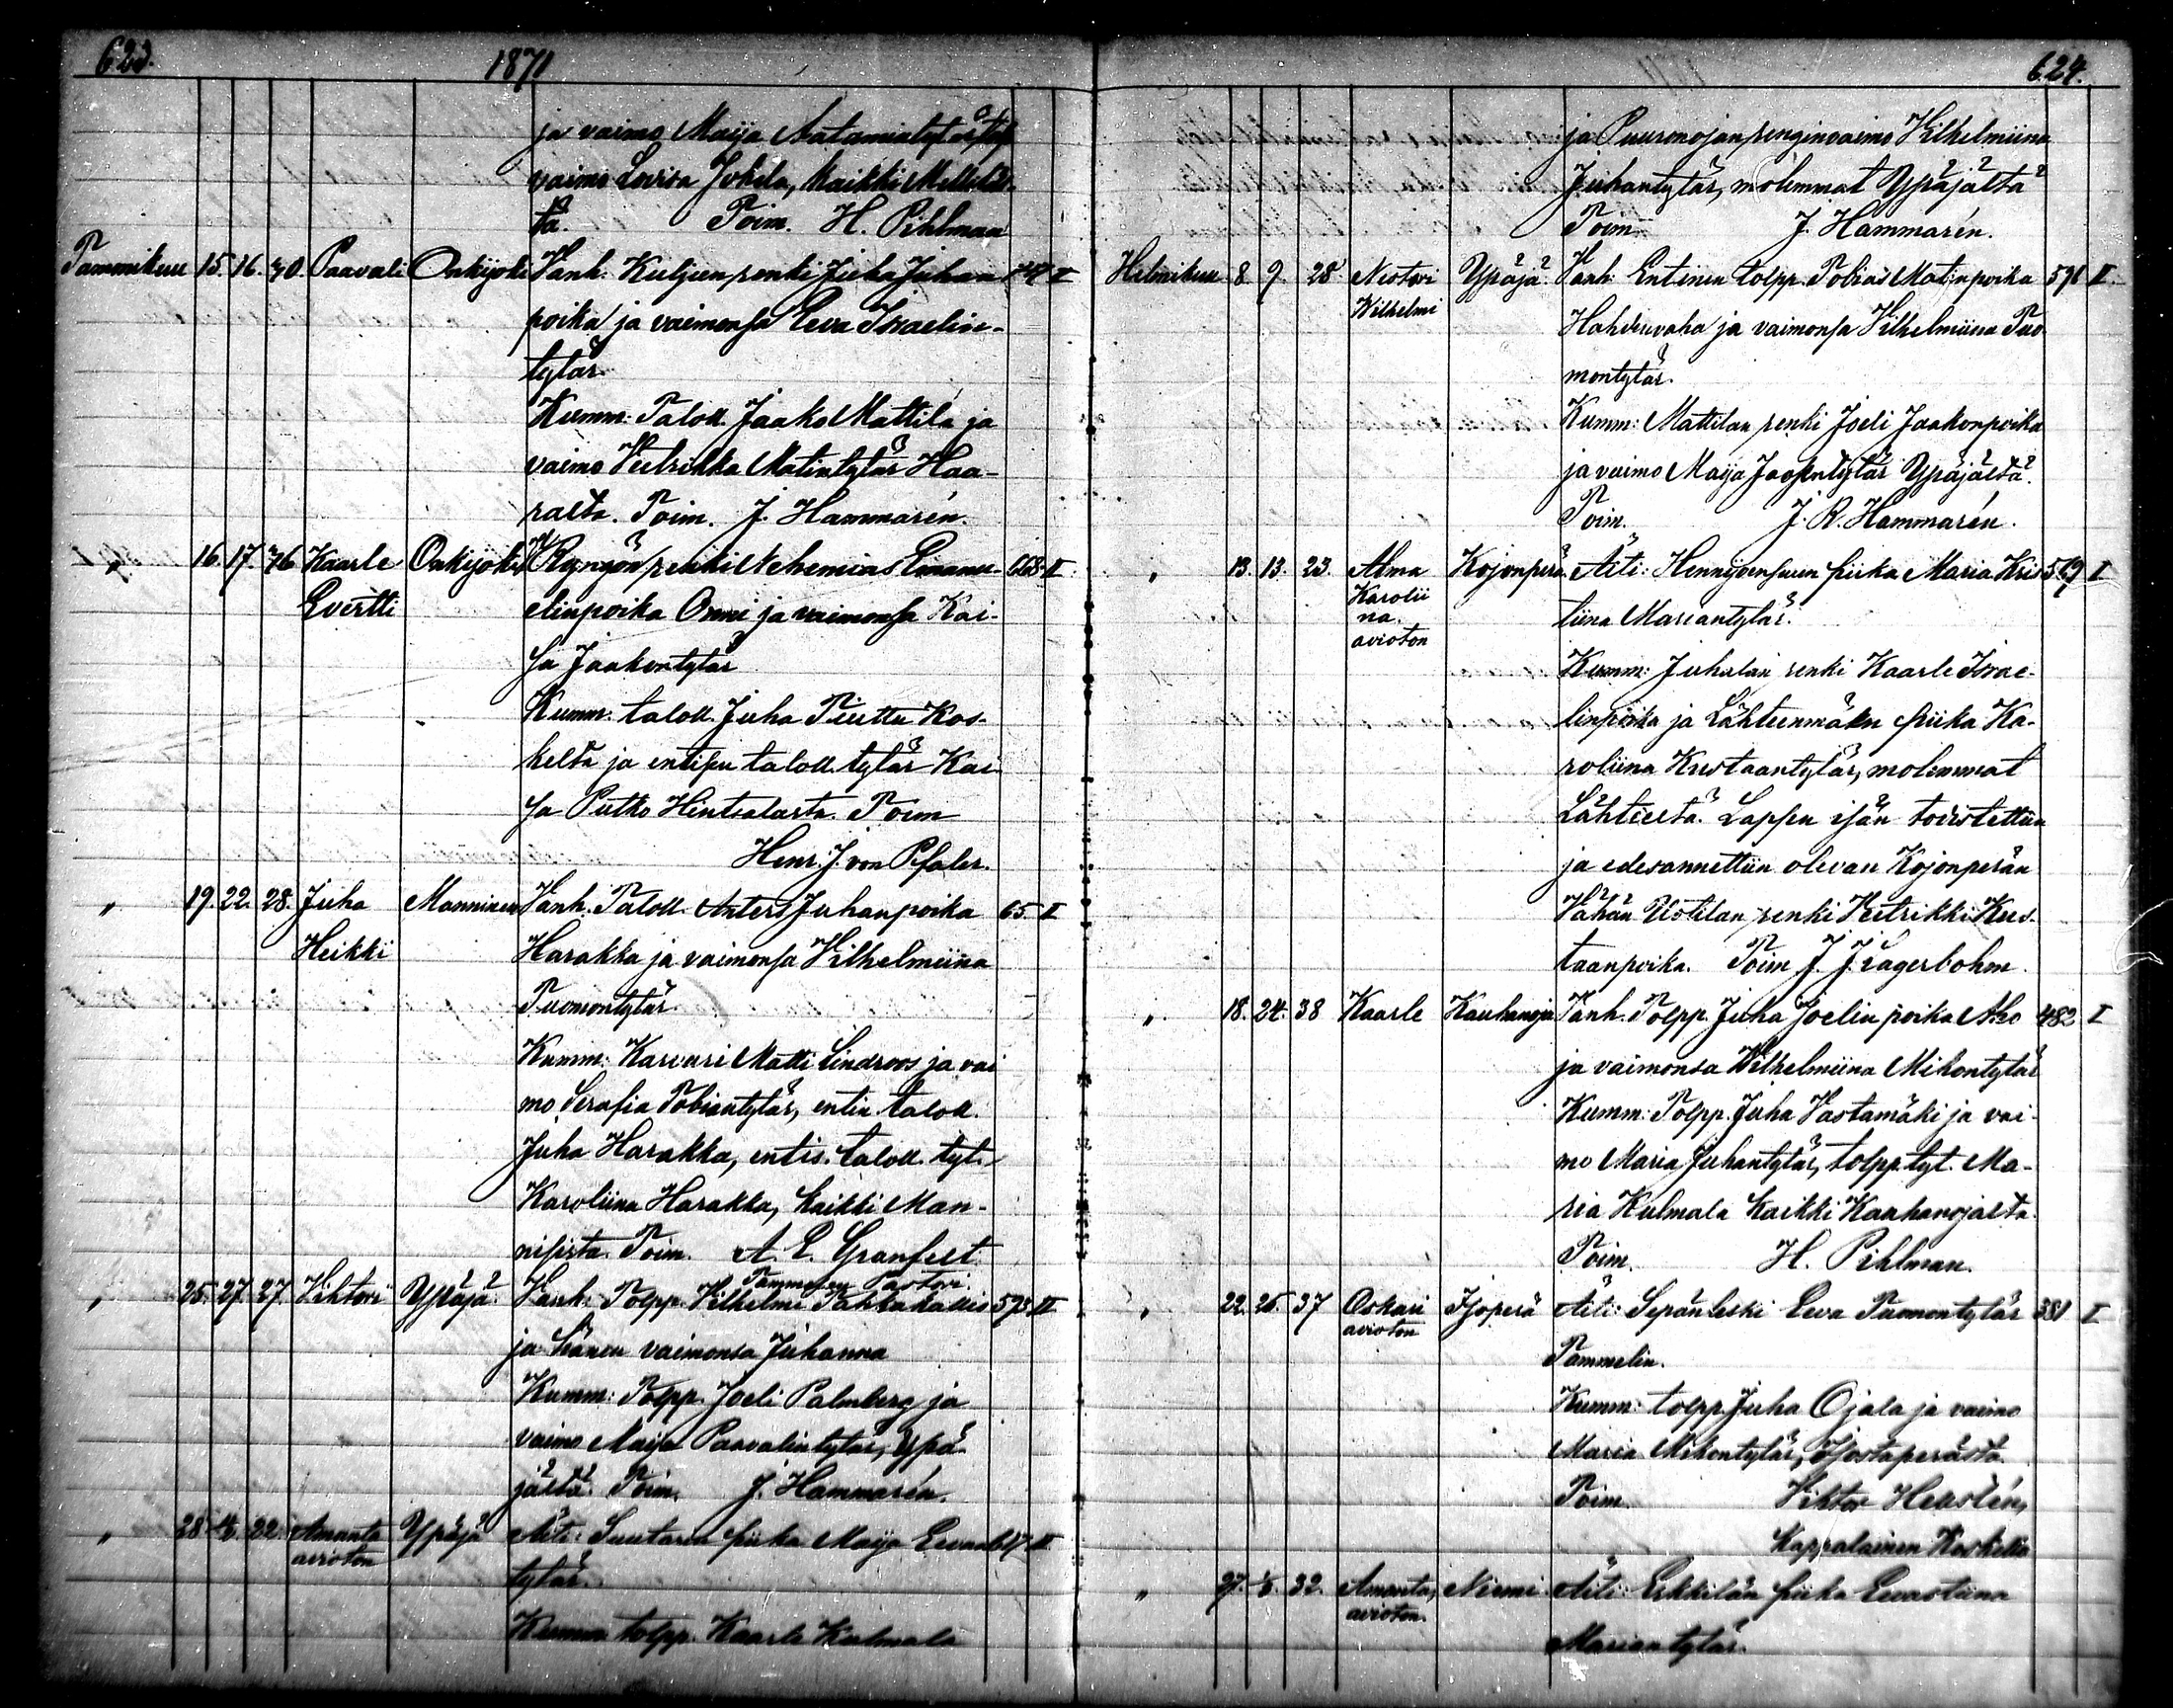 623.
1871
ja vaimo Maija Aatamintytär
vaimo Lovisa Jokela, kaikki
tä. Toim. H. Pihlman
Tammikuu 15. 16. 40. Paavali Onkijoki Vanh. Kuljun renki Juha Juhan I
poika ja vaimonsa Eeva Israelin-
tytär.
Kumm. Taloll. Jaako Mattila ja
vaimo Vetrikka Matintytär Haa-
ralta. Toim. J. Hammarén.
" 16. 17. 36 Kaarle Onkijoki renki Nehemias Emanu- II
Evertti elinpoika Onni ja vaimonsa Kai-
sa Jaakontytär
Kumm: taloll. Juha Piuttu Kos-
kelta ja entisen taloll. tytär Kai
sa Putko Hintsalasta. Toim
Henr. J. von Pfaler.
" 19. 22. 28. Juha Manninen Vanh. Taloll. Anters Juhanpoika 65 I
Heikki Harakka ja vaimonsa Vilhelmiina
Tuomontytär
Kumm: Karvari Matti Lindroos ja vai
mo Serafia Tobiantytär, entin taloll.
Juha Harakka, entis. taloll. tyt.
Karoliina Harakka, kaikki Man-
nisista. Toim. A. E. Granfelt
Tammelan Pastori
" 25. 27. 27. Vihtori Ypäjä. Vanh: Tolpp. Vilhelmi Pahkakallio 593 II
ja hänen vaimonsa Juhanna
Kumm: Tolpp. Joeli Palmberg ja
vaimo Maija Paavalintytär, Ypä
jältä. Toim. J. Hammarén.
" 28 22. Amanta Ypäjä Äiti: Suutarin piika Maija Eevan II
avioton tytär.
Kumm tolpp. Kaarle Kulmala
624.
ja Puuronojan renginvaimo Vilhelmiina
Juhantytär, molemmat Ypäjältä
Toim J. Hammarén.
Helmikuu 8 9. 28 Nestori Ypäjä. Vanh: Entinen tolpp. Tobias Matinpoika 591 II.
Wilhelmi Hahkuvaha ja vaimonsa Vilhelmiina Tuo
montytär.
Kumm: Mattilan renki Joeli Jaakonpoika
ja vaimo Maija Jaopintytär Ypäjältä.
Toim. J. R. Hammarén.
" 13. 13. 23. Alma Kojonperä. Äiti: piika Maria Kris I
Karolii
na. tiina Mariantytär.
avioton
Kumm: Juhalan renki Kaarle Israe-
linpoika ja Lähteenmäen piika Ka-
roliina Kustaantytär, molemmat
Lähteeltä. Lapsen isän todistettiin
ja edesannettiin olevan Kojonperän
Vähän Uotilan renki Vetrikki Kus-
taanpoika. Toim J. J. Lagerbohm.
" 18. 24. 38 Kaarle Kauhanoja Vanh. Tolpp Juha Joelin poika Aho 482 I
ja vaimonsa Wilhelmiina Mikontytär
Kumm: Tolpp. Juha Vastamäki ja vai-
mo Maria Juhantytär, tolpp. tyt. Ma-
ria Kulmala kaikki Kauhanojalta.
Toim. H. Pihlman.
" 22. 26. 37 Oskari Isoperä Äiti: Sepänleski Eeva Tuomontytär 381 I
avioton
Tammelin.
Kumm: tolpp. Juha Ojala ja vaimo
Maria Mikontytär, Isostaperästä.
Toim. Viktor Hellstén,
Kappalainen Koskella
" 27. 32. Amanta, Niemi Äiti: Erkkilän piika Eevastiina
avioton.
Mariantytär.